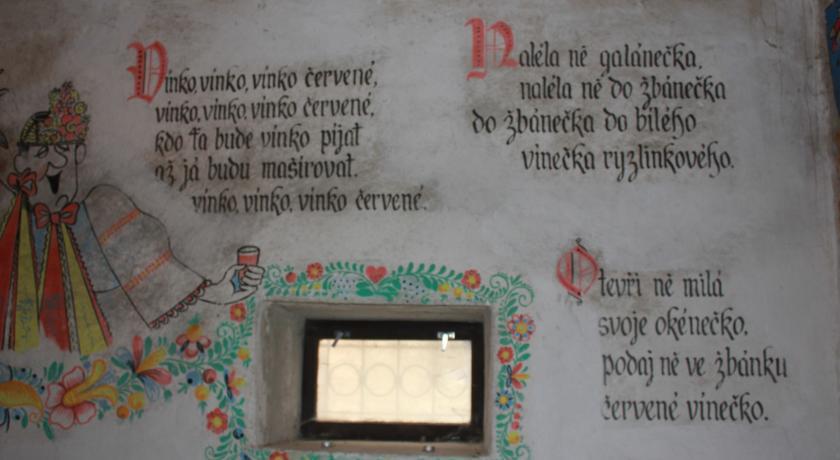 Vínko, vínko, vínko červené,
vínko, vínko, vínko červené,
kdo ťa bude vínko píjat
až já budu mašírovat.
vínko, vínko, vínko červené.
Naléla ně galánečka,
naléla ně do žbánečka
do žbánečka do bílého
vínečka ryzlinkového.
Otevři ně milá
svoje okénečko,
podaj ně ve žbánku
červené vínečko.